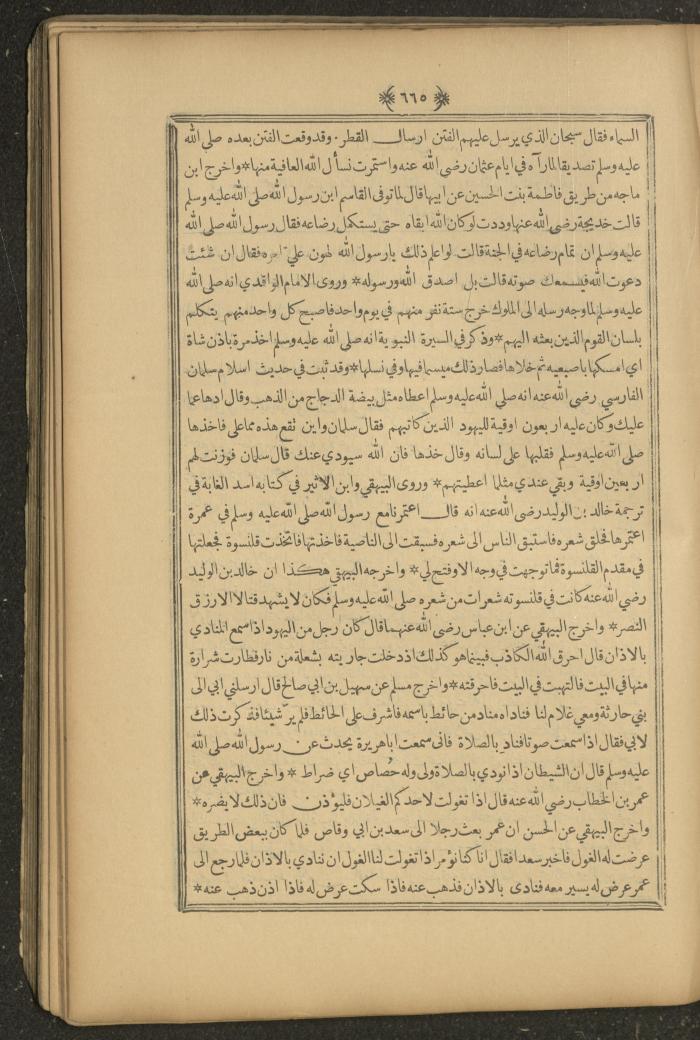 ٦٦٥
السماء فقال سبحان الذي يرسل عليهم الفتن ارسال القطر . وقد وقعت الفتن بعده صلى الله
عليه وسلم تصديقا لما رآه في ايام عثمان رضى الله عنه واستمرت نسأل الله العافية منها * واخرج ابن
ماجه من طريق فاطمة بنت الحسين عن ابيها قال لما توفى القاسم ابن رسول الله صلى الله عليه وسلم
قالت خديجة رضى الله عنها وددت لو كان الله ابقاه حتى يستكمل رضاعه فقال رسول الله صلى الله
عليه وسلم ان تمام رضاعه في الجنة قالت لو اعلم ذلك يا رسول الله لهون علي امره فقال ان شئت
دعوت الله فيسمعك صوته قالت بل اصدق الله ورسوله * وروى الامام الواقدي انه صلى الله
عليه وسلم لما وجه رسله الى الملوك خرج ستة نفر منهم في يوم واحد فاصبح كل واحد منهم يتكلم
بلسان القوم الذين بعثه اليهم * وذكر في السيرة النبوية انه صلى الله عليه وسلم اخذ مرة باذن شاة
اي امسكها باصبعيه ثم خلاها فصار ذلك ميسما فيها وفي نسلها * وقد ثبت في حديث اسلام سلمان
الفارسي رضى الله عنه انه صلى الله عليه وسلم اعطاه مثل بيضة الدجاج من الذهب وقال ادها عما
عليك وكان عليه اربعون اوقية لليهود الذين كاتبهم فقال سلمان واين تقع هذه مما على فاخذها
صلى الله عليه وسلم فقلبها على لسانه وقال خذها فان الله سيودي عنك قال سلمان فوزنت لهم
اربعين اوقية وبقي عندي مثلما اعطيتهم * وروى البيهقي وابن الاثير في كتابه اسد الغابة في
ترجمة خالد بن الوليد رضى الله عنه انه قال اعتمرنا مع رسول الله صلى الله عليه وسلم في عمرة
اعتمرها فحلق شعره فاستبق الناس الى شعره فسبقت الى الناصية فاخذتها فاتخذت قلنسوة فجعلتها
في مقدم القلنسوة فما توجهت في وجه الا وفتح لي * واخرجه البيهقي هكذا ان خالد بن الوليد
رضى الله عنه كانت في قلنسوته شعرات من شعره صلى الله عليه وسلم فكان لا يشهد قتالا الا رزق
النصر * واخرج البيهقي عن ابن عباس رضى الله عنهما قال كان رجل من اليهود اذا سمع المنادي
بالاذان قال احرق الله الكاذب فبينما هو كذلك اذ دخلت جاريته بشعلة من نار فطارت شرارة
منها في البيت فالتهبت في البيت فاحرقته * واخرج مسلم عن سهيل بن ابي صالح قال ارسلني ابي الى
بني حارثة ومعي غلام لنا فناداه مناد من حائط باسمه فاشرف على الحائط فلم ير شيئا فذكرت ذلك
لابي فقال اذا سمعت صوتا فناد بالصلاة فانى سمعت ابا هريرة يحدث عن رسول الله صلى الله
عليه وسلم قال ان الشيطان اذا نودي بالصلاة ولى وله حُصاص اي ضراط * واخرج البيهقي عن
عمر بن الخطاب رضي الله عنه قال اذا تغولت لاحدكم الغيلان فليؤذن فان ذلك لا يضره *
واخرج البيهقي عن الحسن ان عمر بعث رجلا الى سعد بن ابي وقاص فلما كان ببعض الطريق
عرضت له الغول فاخبر سعدا فقال انا كنا نؤمر اذا تغولت لنا الغول ان ننادي بالاذان فلما رجع الى
عمر عرض له يسير معه فنادى بالاذان فذهب عنه فاذا سكت عرض له فاذا اذن ذهب عنه *